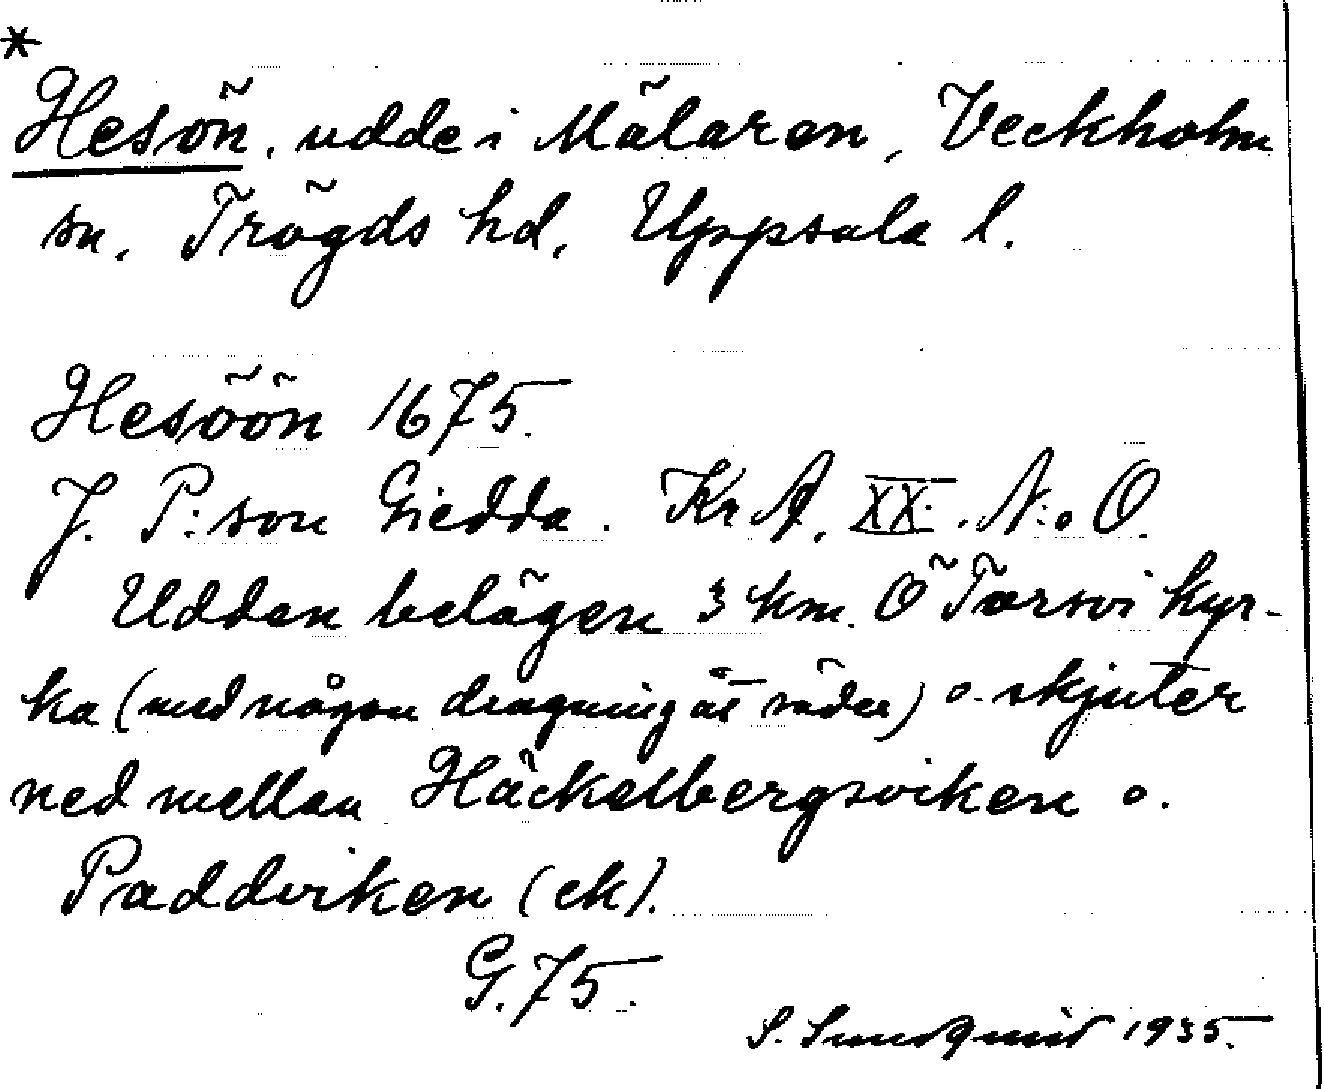 *
Hesön, udde i Mälaren, Veckholm
sn, Trögds hd, Uppsala l.
Hesöön 1675.
J. P:son Giedda. KrA, XX. N:o O.
Udden belägen 3 km. Ö Torsvi kyr-
ka (med någon dragning åt söder) o. skjuter
ned mellan Häckelbergsviken o.
Paddviken (ek).
G. 75.
S. Sundquist 1935.